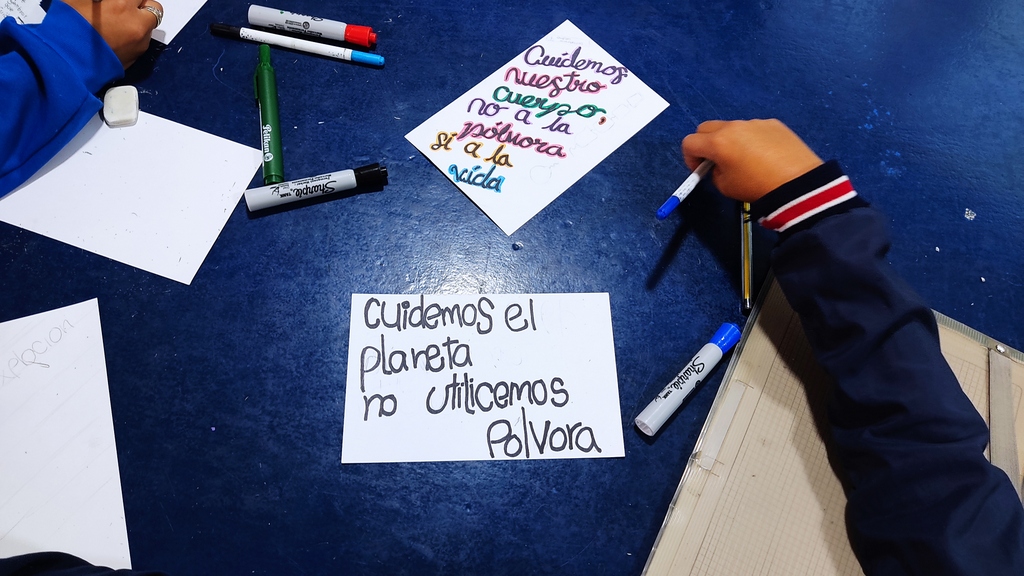 Cuidemos
nuestro
cuerpo,
no a la
pólvora
sí a la
vida
Cuidemos el
planeta
no utilicemos
Polvora
Sharpie
Sharpie
Pelikan